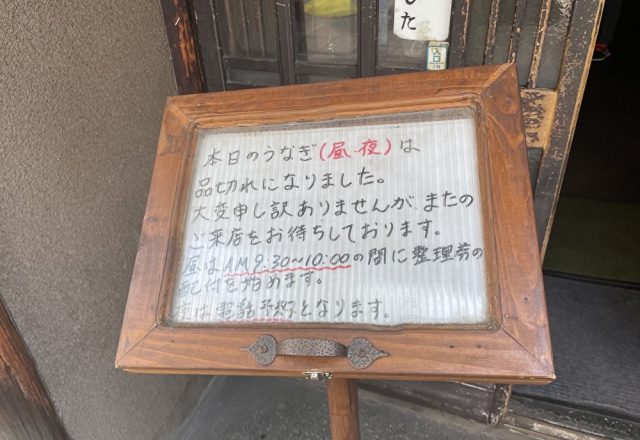 した
入口
IN
本日のうなぎ(昼・夜)は
品切れになりました。
大変申し訳ありませんが、またの
ご来店をお待ちしております。
昼はAM9:30~10:00の間に整理券の
配付を始めます。
夜は電話予約となります。